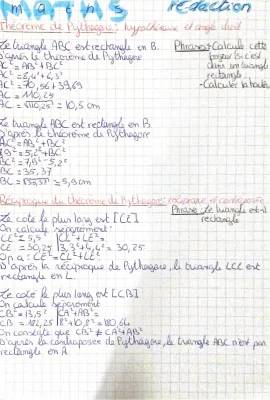 maths rédaction
Théorème de Pythagore: hypoténuse et angle droit
Le triangle ABC est rectangle en B.
D'après le théorème de Pythagore
AC² = AB² + BC²
AC² = 8,4² + 6,3²
AC² = 70,56 + 39,69
AC = 110,25
AC = √110,25 = 10,5 cm
Phrase: Calcule cette
dans un triangle
rectangle.
- Calculer la
Le triangle ABC est rectangle en B
D'après le théorème de Pythagore
AC² = AB² + BC²
7,9² = 5,2² + BC²
BC² = 7,9² - 5,2²
BC = 35,37
BC = √35,37 ≈ 5,9 cm
Réciproque du théorème de Pythagore: réciproque et contraposée
Phrase: Le triangle est-il
rectangle
Le côté le plus long est [CE]
On calcule séparément:
CE² = 5,5² |CL² + EL² =
CE = 30,25 |3,3² + 4,4² = 30,25
On a: CE² = CL² + EL²
D'après la réciproque de Pythagore, le triangle LCE est
rectangle en L.
Le côté le plus long est [CB]
On calcule séparément
CB² = 13,5² |CA² + AB² =
CB = 182,25 |8² + 10,8² = 180,64
On constate que CB² ≠ CA² + AB²
D'après la contraposée de Pythagore, le triangle ABC n'est pas
rectangle en A.